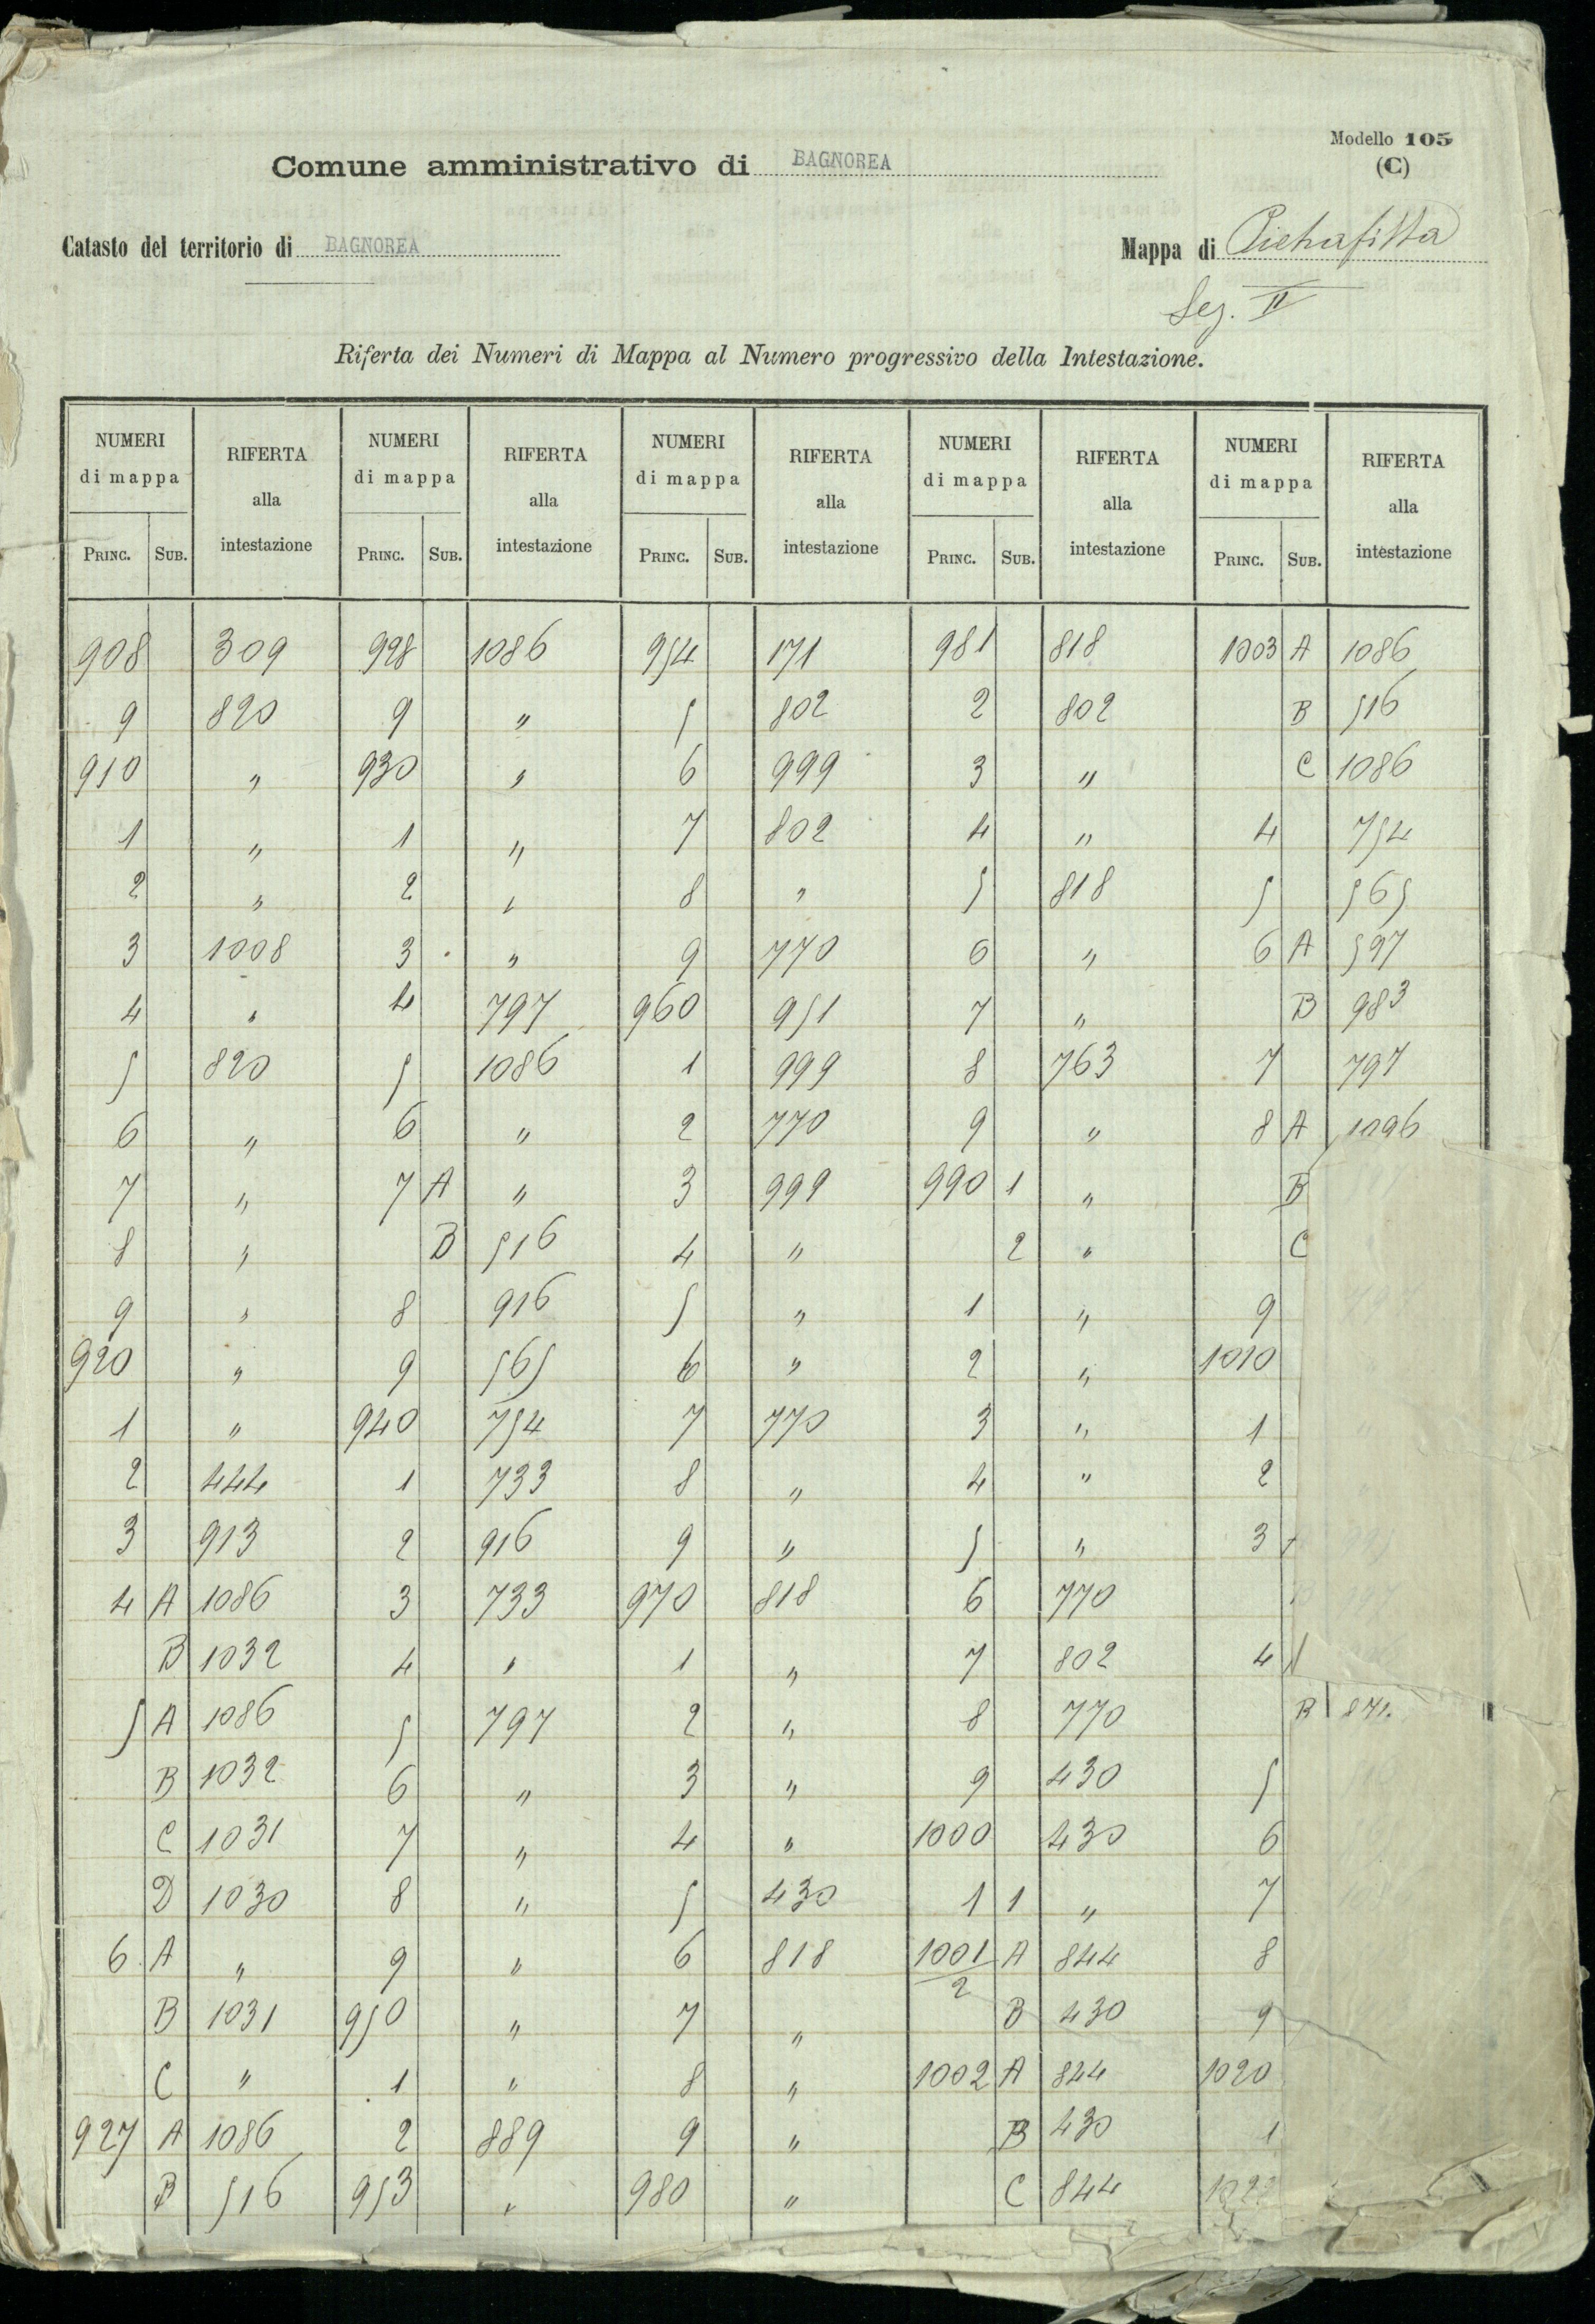 Modello 105
(C)
Comune amministrativo di BAGNOREA
Catasto del territorio di BAGNOREA
Mappa di Pietrafitta
Sez. II
Riferta dei Numeri di Mappa al Numero progressivo della Intestazione.
NUMERI di mappa RIFERTA alla intestazione NUMERI di mappa RIFERTA alla intestazione NUMERI di mappa RIFERTA alla intestazione NUMERI di mappa RIFERTA alla intestazione NUMERI di mappa RIFERTA alla intestazione
PRINC. SUB. PRINC. SUB. PRINC. SUB. PRINC. SUB. PRINC. SUB.
908 309 928 1086 954 171 981 818 1003 A 1086
9 820 9 " 5 802 2 802 B 516
910 " 930 " 6 999 3 " C 1086
1 " 1 " 7 802 4 " 4 754
2 " 2 " 8 " 5 818 5 565
3 1008 3 " 9 770 6 " 6 A 597
4 " 4 797 960 951 7 " B 983
5 820 5 1086 1 999 8 763 7 797
6 " 6 " 2 770 9 " 8 A 1096
7 " 7 A " 3 999 990 1 " B
8 " B 516 4 " 2 " C
9 " 8 916 5 " 1 " 9
920 " 9 565 6 " 2 " 1010
1 " 940 754 7 770 3 " 1
2 444 1 733 8 " 4 " 2
3 913 2 916 9 " 5 " 3
4 A 1086 3 733 970 818 6 770
B 1032 4 " 1 " 7 802 4
5 A 1086 5 797 2 " 8 770 B 871.
B 1032 6 " 3 " 9 430 5
C 1031 7 " 4 " 1000 430 6
D 1030 8 " 5 430 1 1 " 7
6 A " 9 " 6 818 1001/2 A 844 8
B 1031 950 " 7 " B 430 9
C " 1 " 8 " 1002 A 844 1020
927 A 1086 2 889 9 " B 430 1
B 516 953 " 980 " C 844 1022